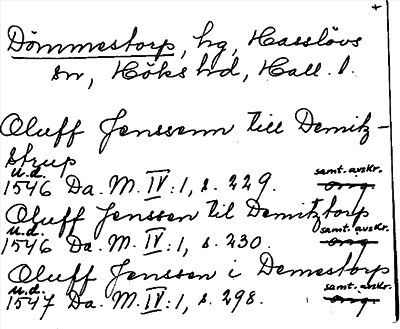 Dömmestorp, hg, Hasslövs
sn, Höks hd, Hall. l.
Oluff Jenssenn till Demitz-
strup
u.d. samt. avskr.
1546 Da. M. IV:1, s. 229. orig.
Oluff Jenssen til Demitztorp
u.d. samt. avskr.
1546 Da. M. IV:1, s. 230. orig.
Oluff Jenssen i Demestorp
u.d. samt. avskr.
1547 Da. M. IV:1, s. 298. orig.